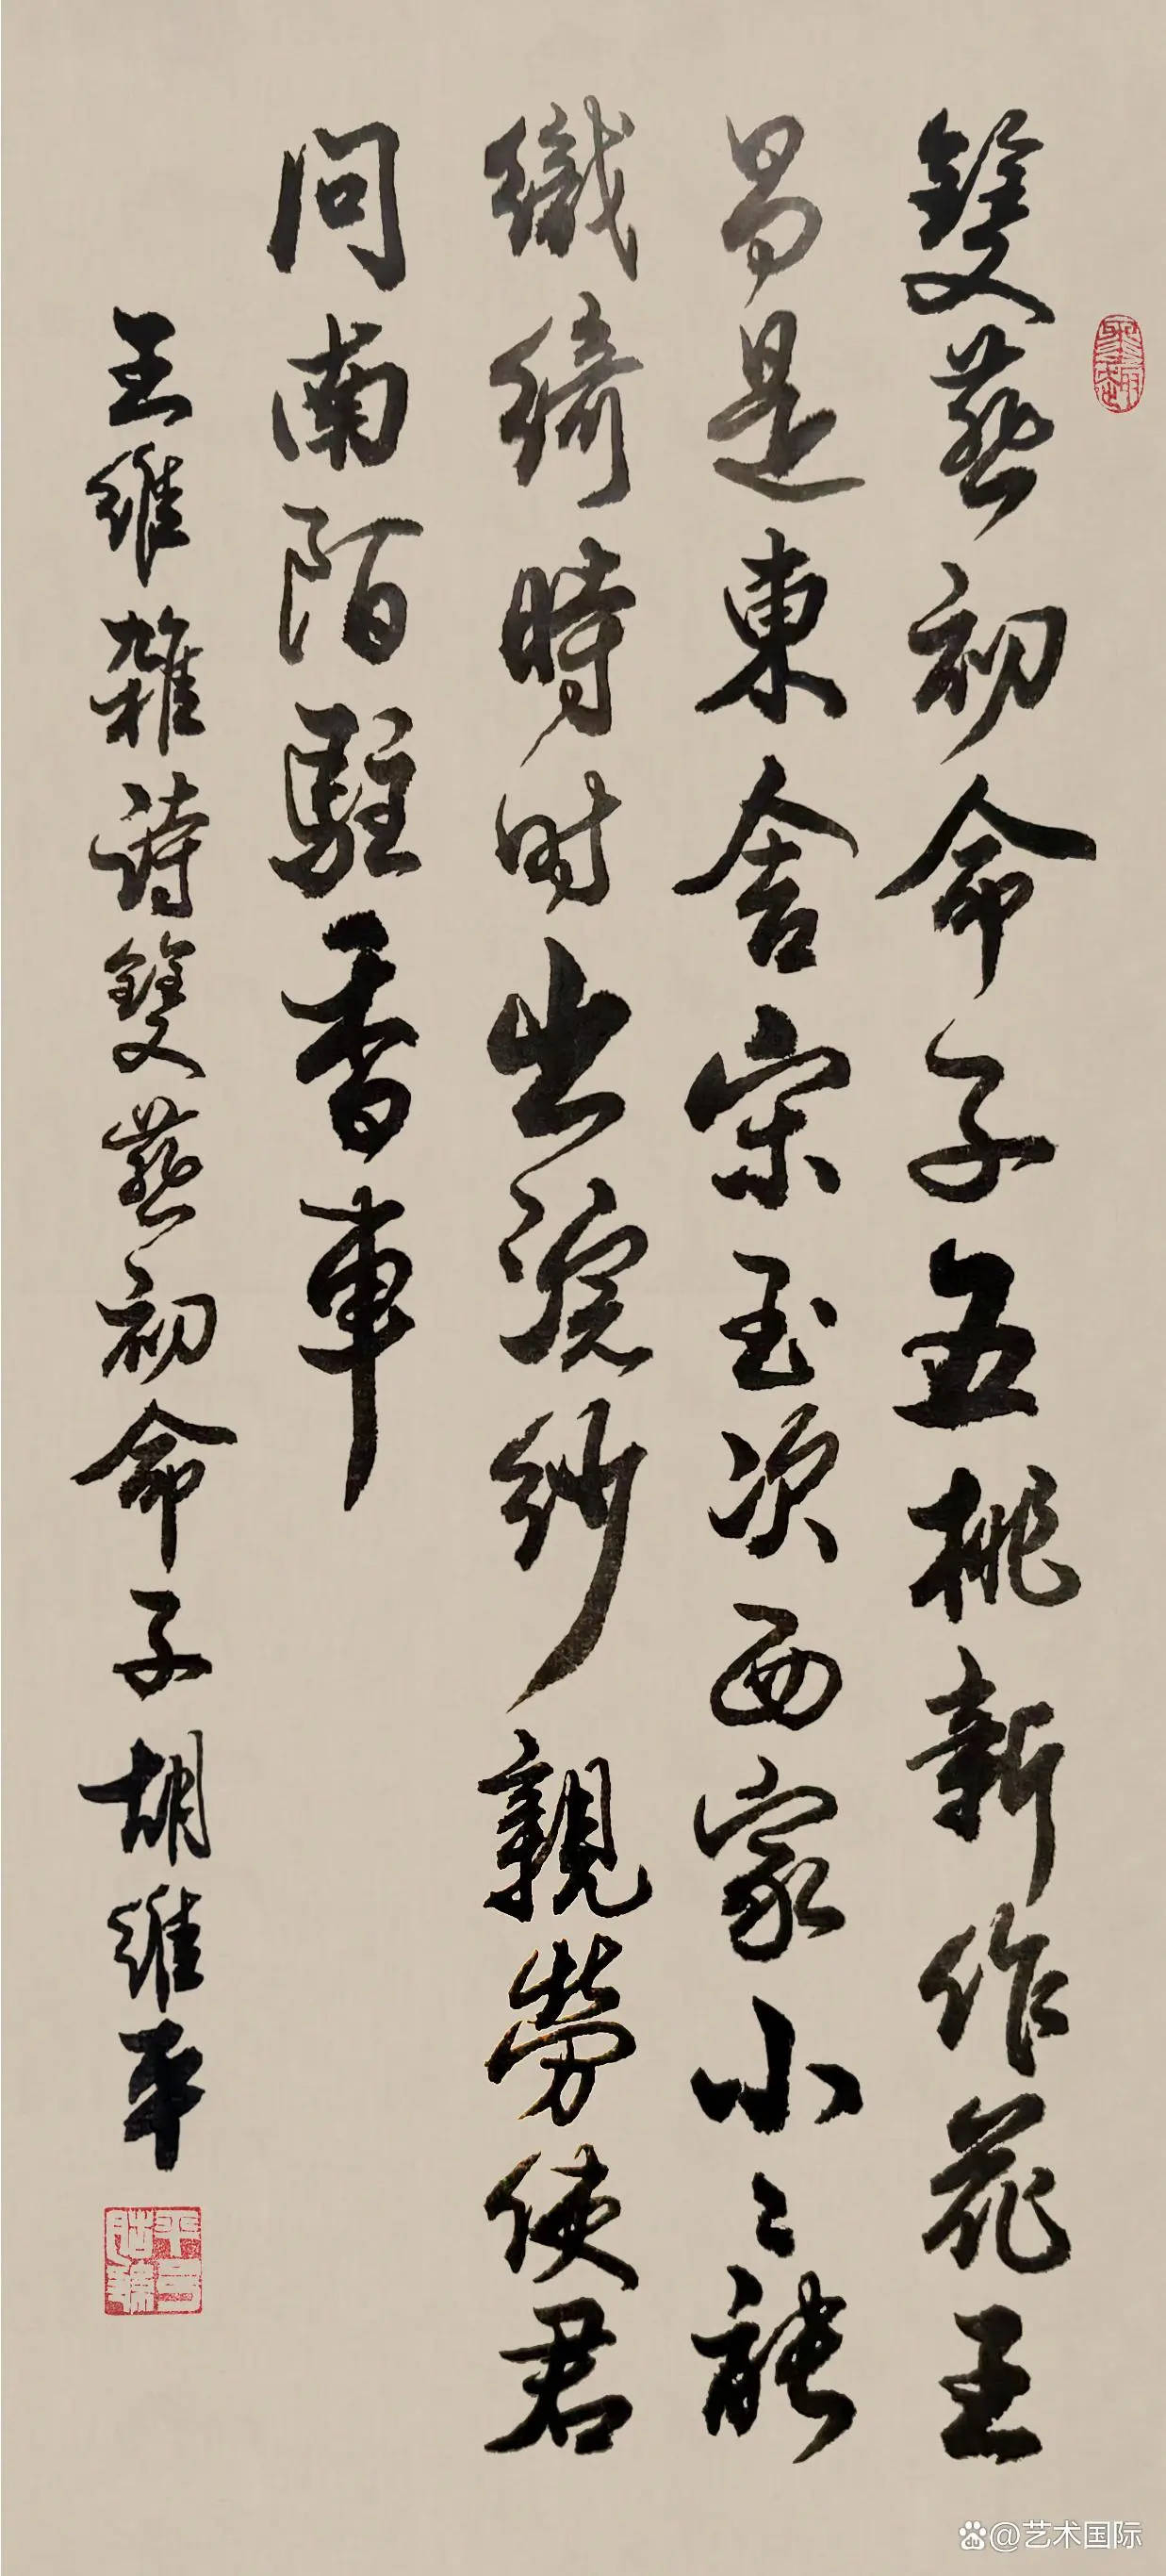 雙燕初命子五桃新作花王
昌是東舍宋玉次西家小〻能
織綺時时出浣紗親勞使君
問南陌駐香車
王維雜詩雙燕初命子胡維平
du @艺术国际